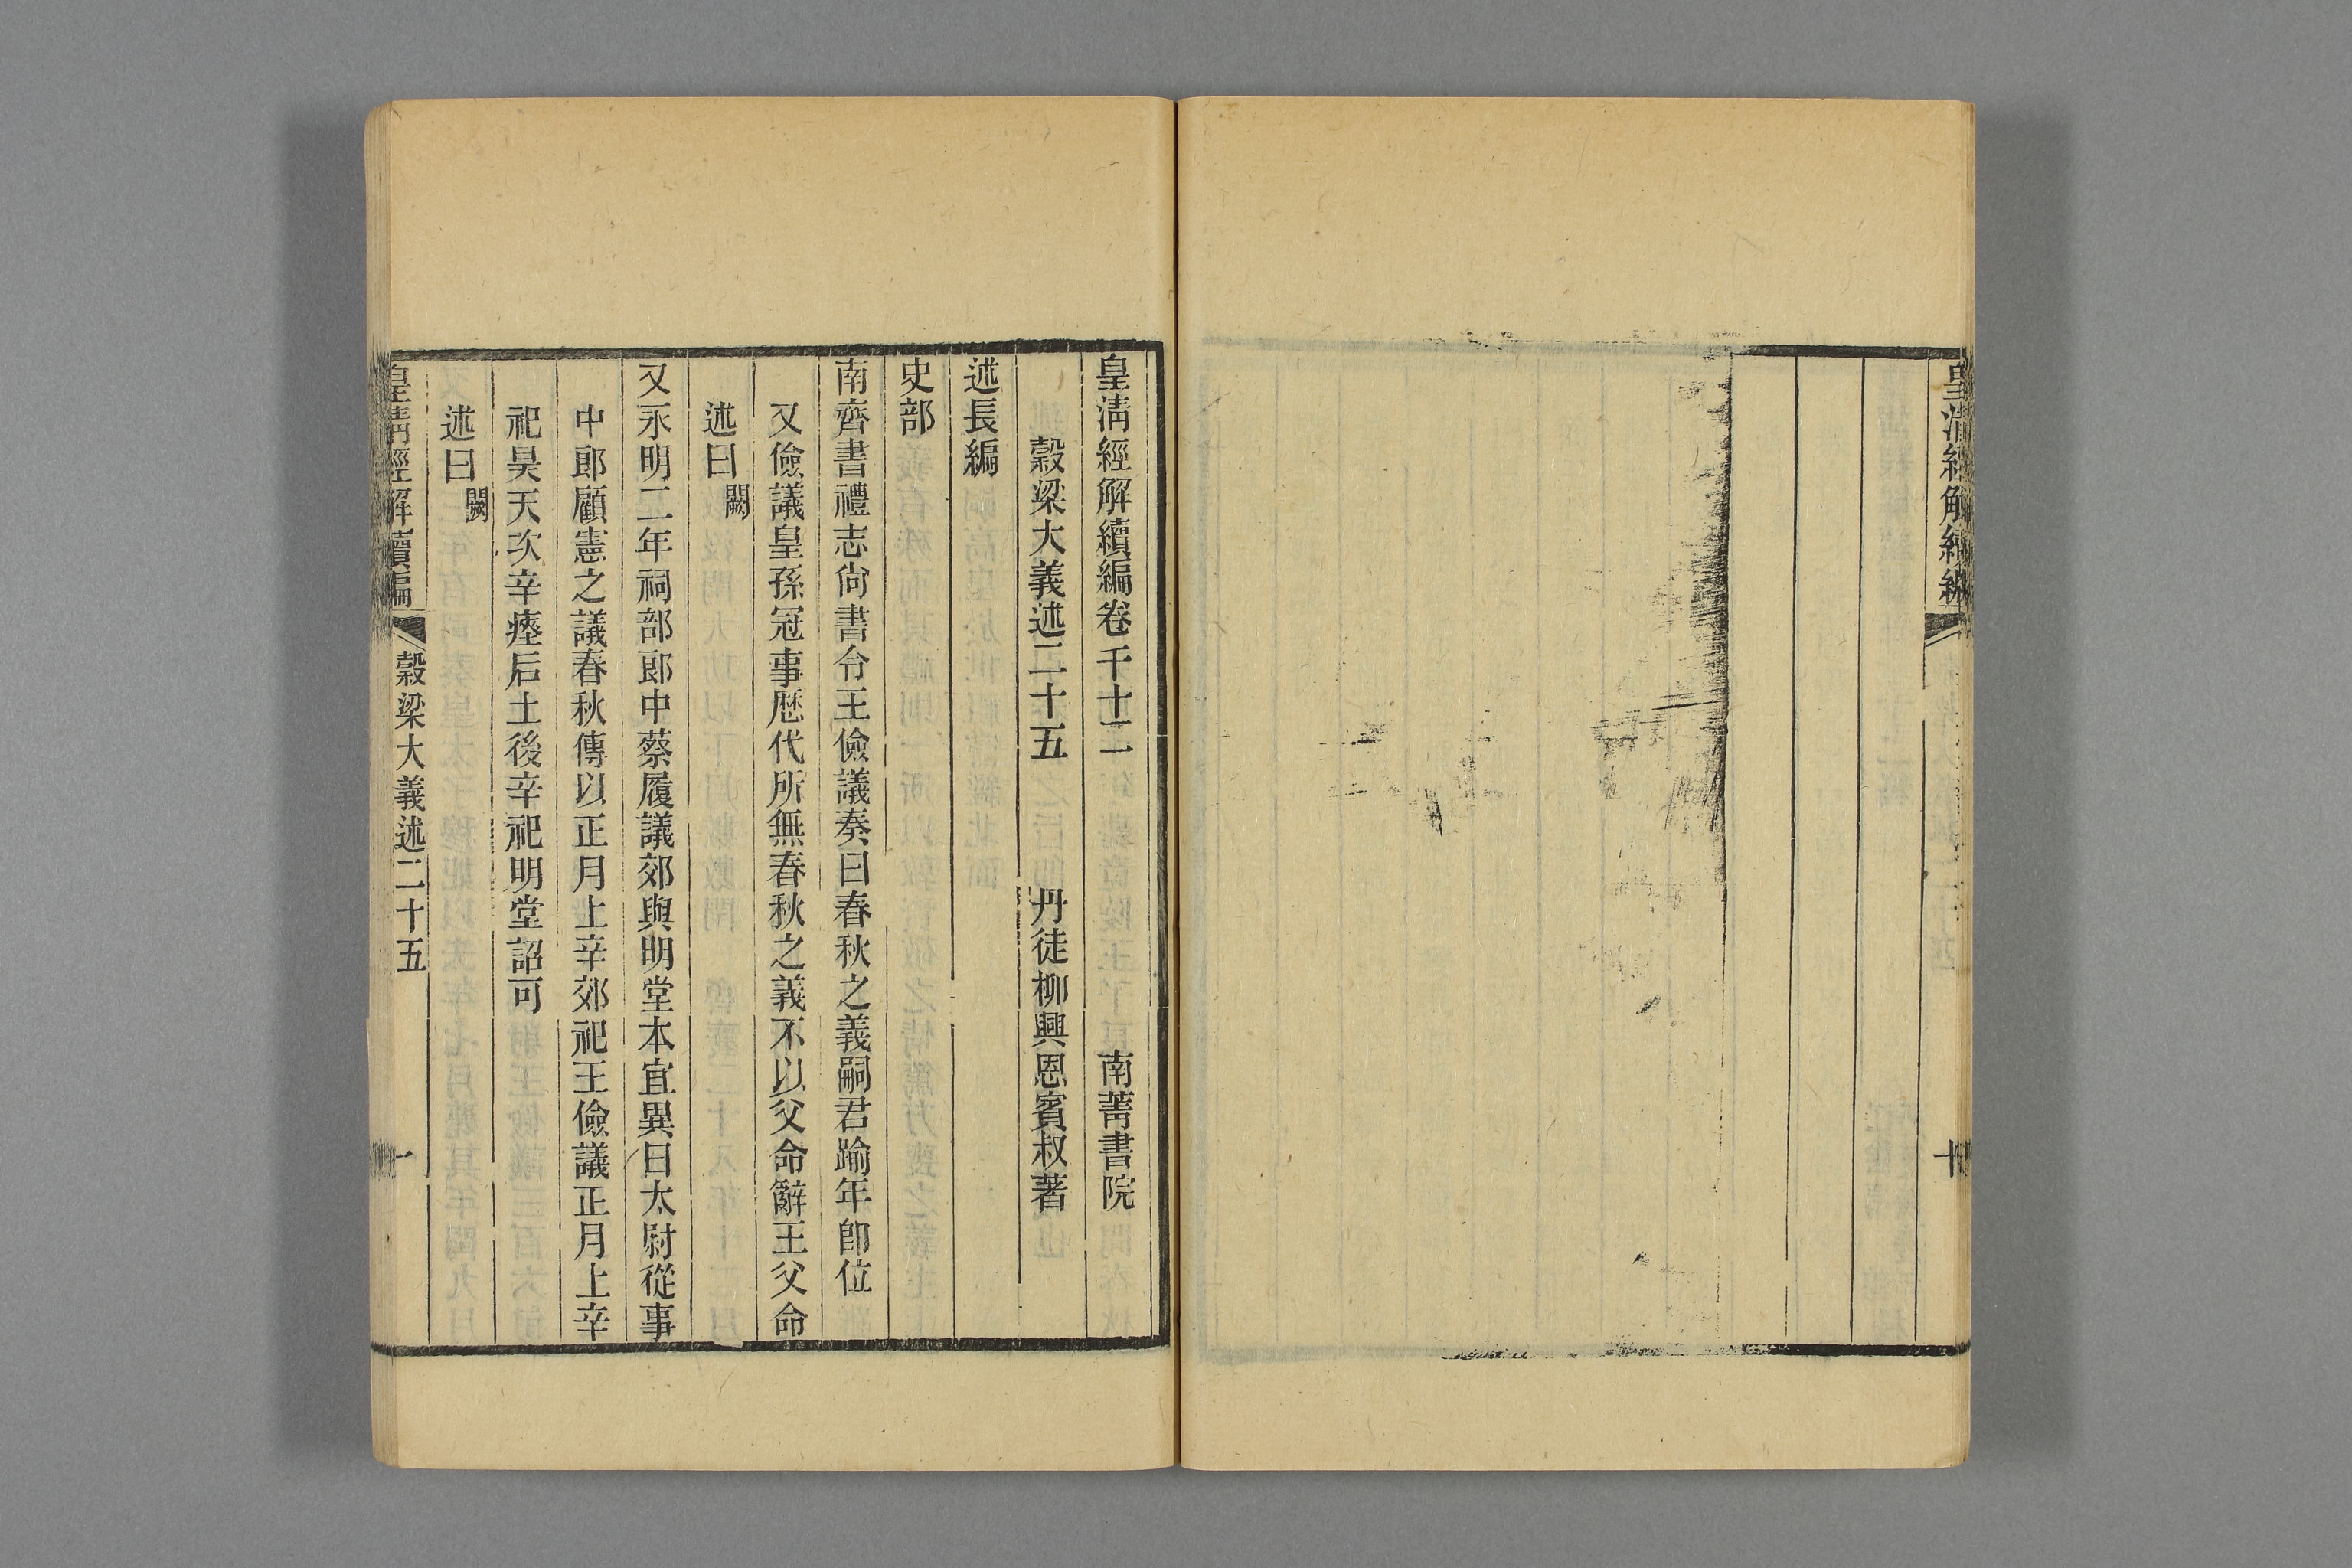 皇清經解續編
十
皇清經解續編卷千十二 南菁書院
穀梁大義述二十五 丹徒柳興恩賓叔著
述長編
史部
南齊書禮志尙書令王儉議奏曰春秋之義嗣君踰年卽位
又儉議皇孫冠事歷代所無春秋之義不以父命辭王父命
述曰闕
又永明二年祠部郎中蔡履議郊與明堂本宜異日太尉從事
中郎顧憲之議春秋傳以正月上辛郊祀王儉議正月上辛
祀昊天次辛瘞后土後辛祀明堂詔可
述曰闕
皇清經解續編 穀梁大義述二十五 一